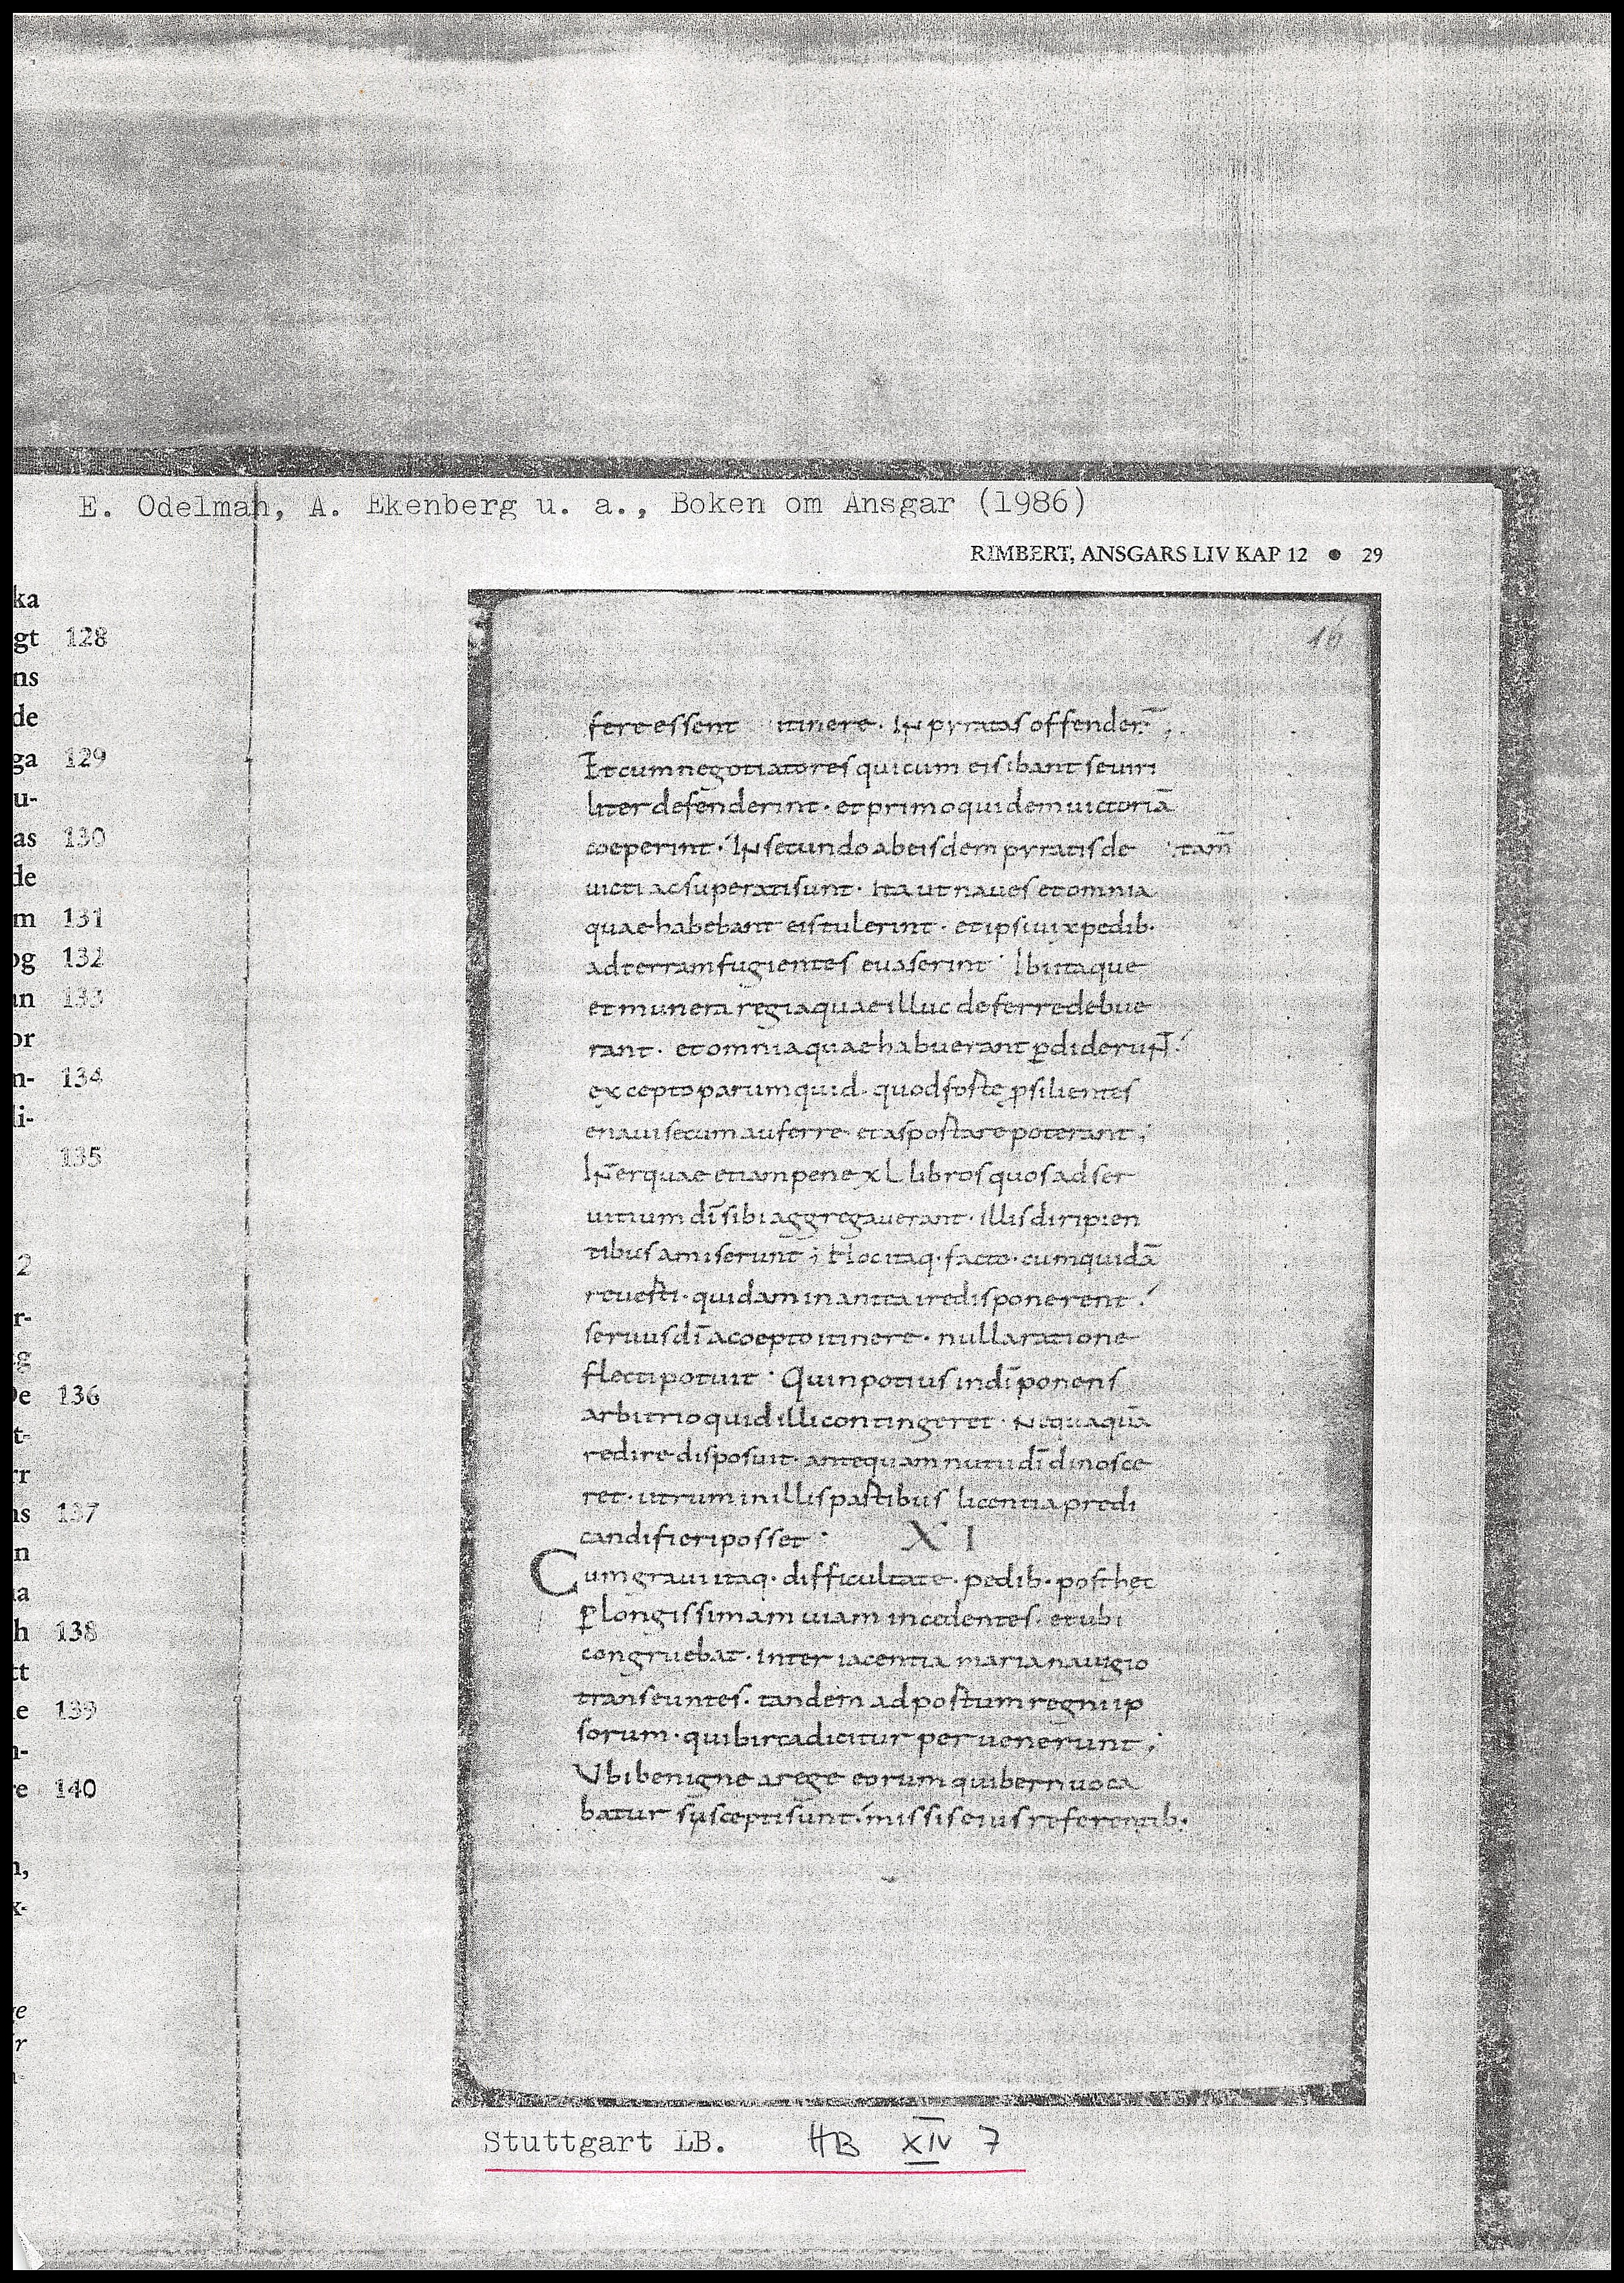 E. Odelman, A. Ekenberg u. a., Boken om Ansgar (1986)
RIMBERT, ANSGARS LIV KAP 12 • 29
ka
gt 128
ns
de
ga 129
u-
as 130
de
m 131
og 132
an 133
or
n- 134
li-
135
2
r-
g
De 136
t-
rr
ns 137
n
na
h 138
tt
e 139
n-
re 140
n,
x-
e
r
16
fere essent itinere. In pyratas offender̅;.
Et cum negotiatores qui cum eis ibant se uiri
liter defenderint. et primo quidem uictoriā
coeperint. In secundo ab eisdem pyratis de tam̅
uicti ac superati sunt. Ita ut naues et omnia
quae habebant eis tulerint. et ipsi uix pedib.
ad terram fugientes euaserint. Ibi itaque
et munera regia quae illuc deferre debue
rant. et omnia quae habuerant p̱diderunt.
excepto parum quid. quod foste psilientes
e naui secum auferre et aspostare poterant;
Inter quae etiam pene xL libros quos ad ser
uitium dī sibi aggregauerant. illis diripien
tibus amiserunt; Hoc itaq. facto. cum quidā
reuesti. quidam in antea ire disponerent.
seruus dī accepto itinere. nulla ratione
flecti potuit. Quin potius in dī ponens
arbitrio quid illi contingeret. Nequaquā
redire disposuit. antequam nutu dī dinosce
ret. utrum in illis pastibus licentia predi
candi fieri posset. XI
Cum graui itaq. difficultate. pedib. post hec
p̱ longissimam uiam incedentes. et ubi
congruebat. inter iacentia maria nauigio
transeuntes. tandem ad postum regni ip
sorum. qui birca dicitur peruenerunt;
Ubi benigne a rege eorum qui bern uoca
batur suscepti sunt. missis eius referentib.
Stuttgart LB. HB XIV 7